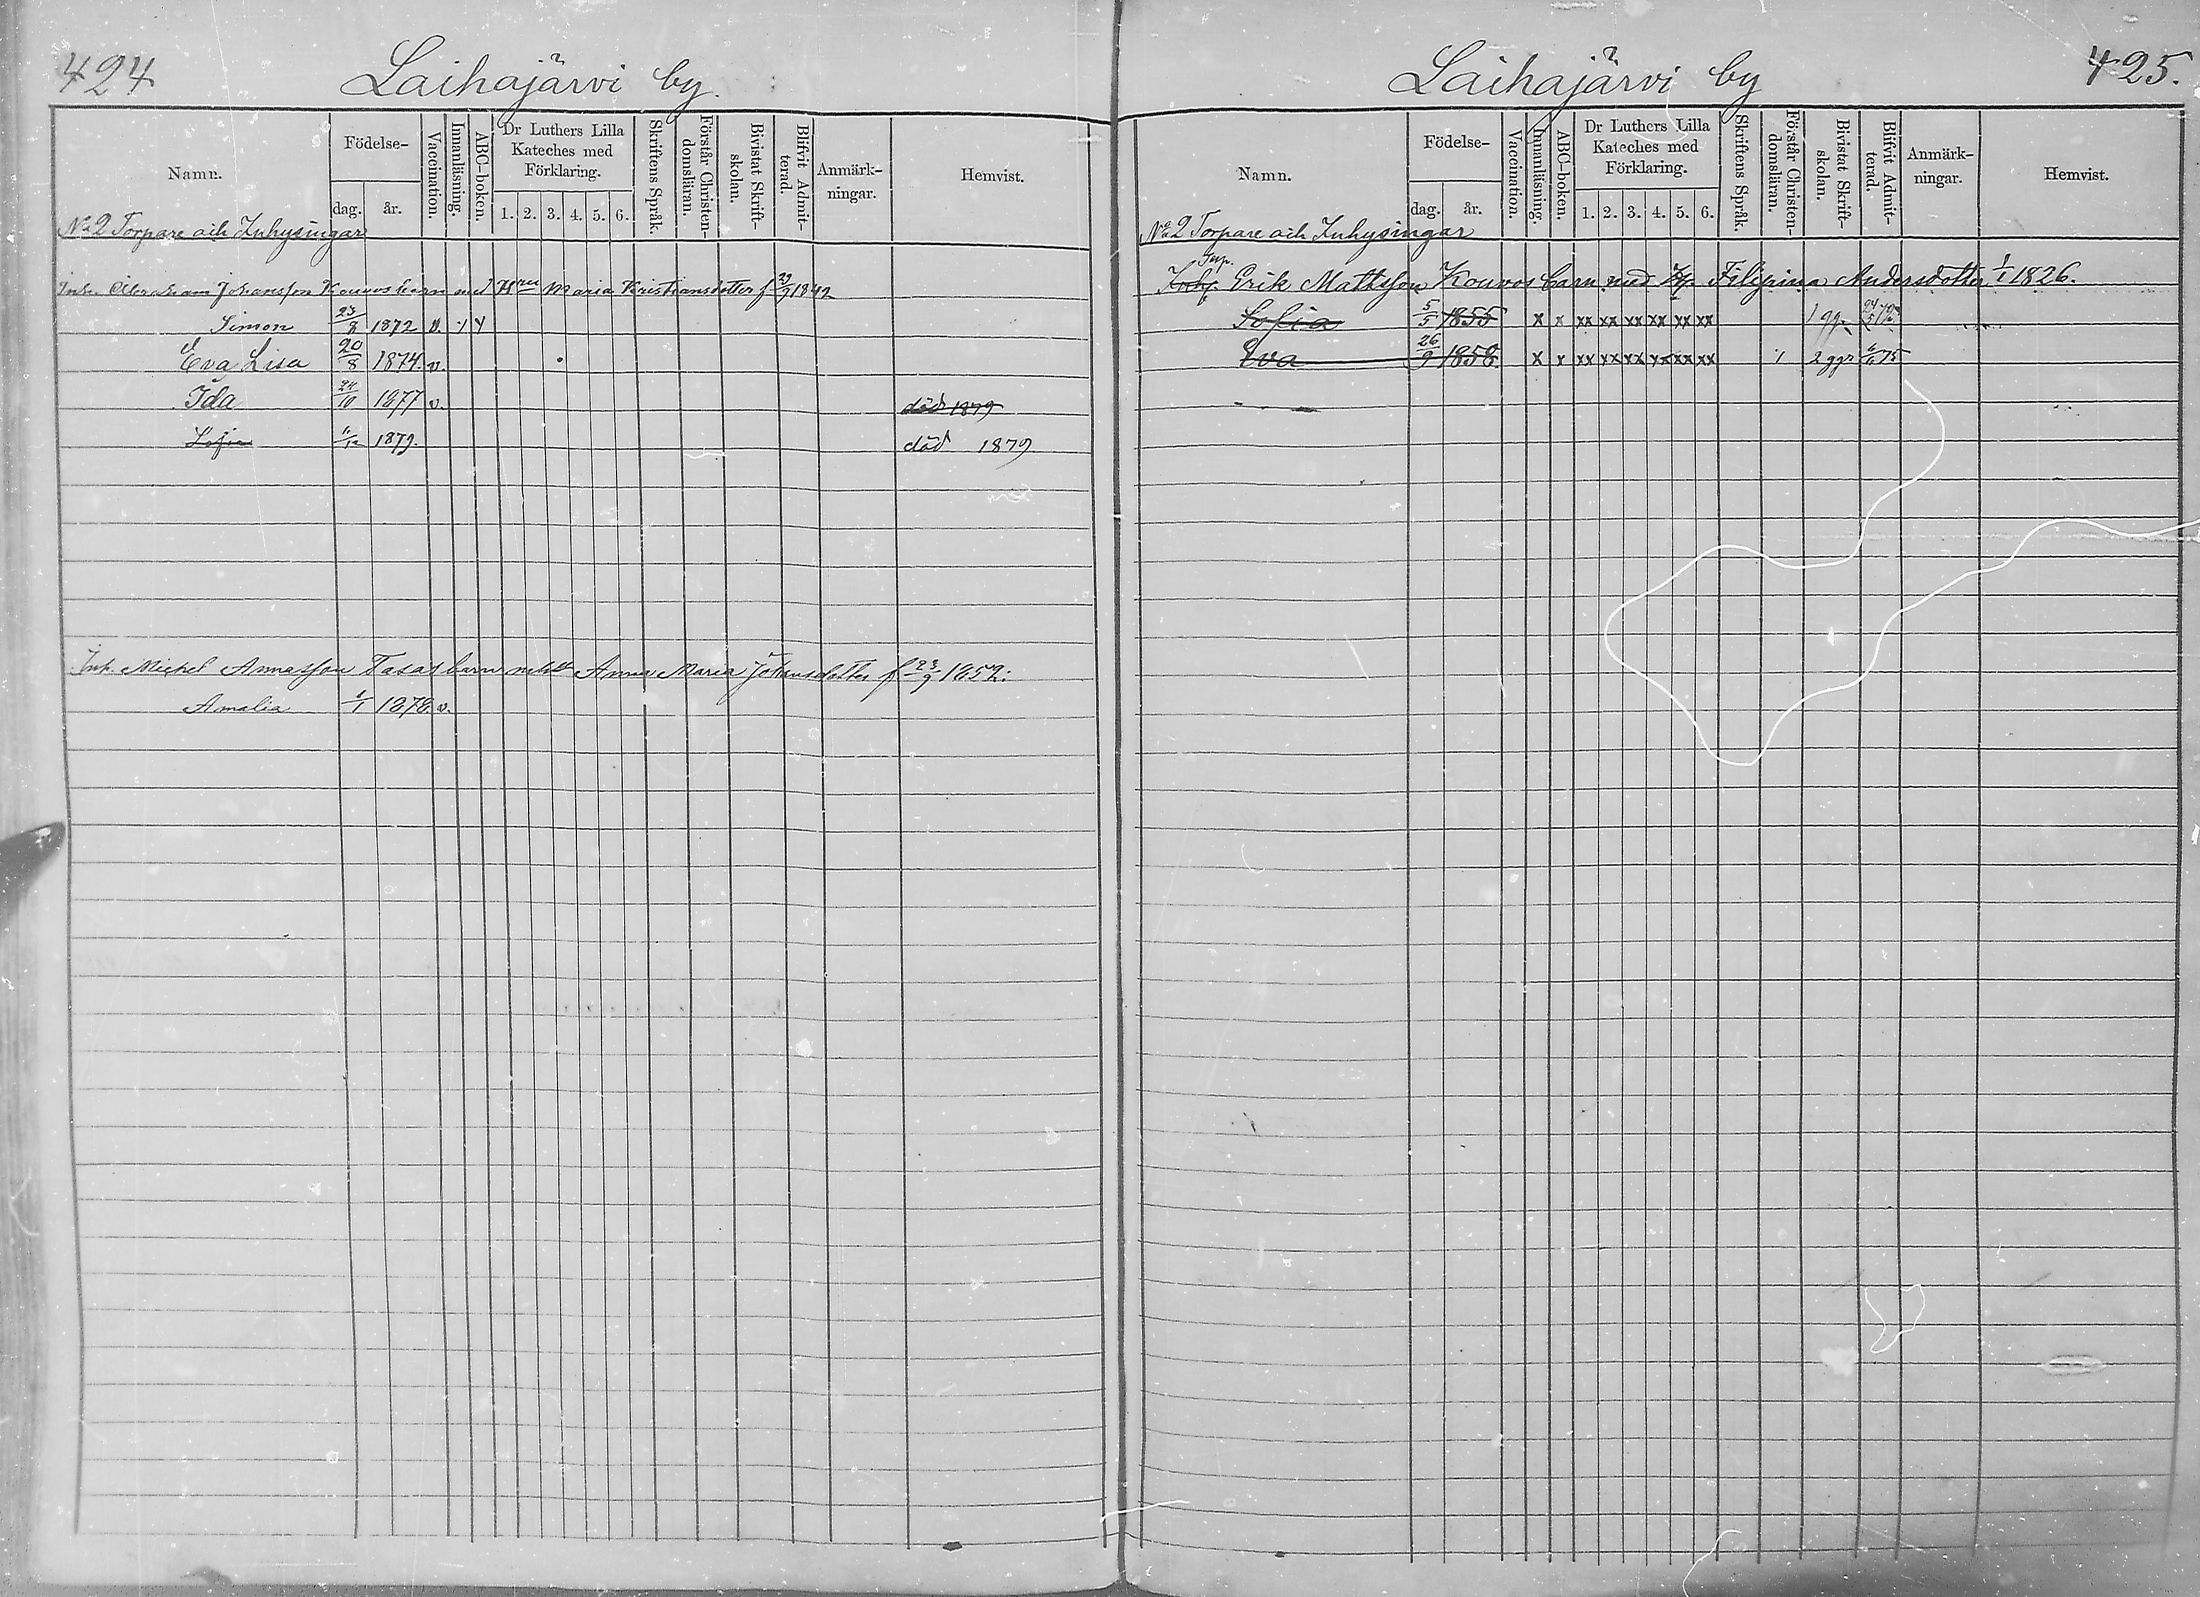 424
Laihajärvi by.
Namn.
Födelse-
dag.
år.
Vaccination.
Innanläsning.
ABC-boken.
Dr Luthers Lilla
Kateches med
Förklaring.
1. 2. 3. 4. 5. 6.
Skriftens Språk.
Förstår Christen-
domsläran.
Bivistat Skrift-
skolan.
Blifvit Admit-
terad.
Anmärk-
ningar.
Hemvist.
No 2 Torpare och Inhysingar
Johansson Kouvos barn med Hnu Maria Kristiansdotter f 29/9 1842
Simon 23/8 1872 v.
Eva Lisa 20/8 1874. v.
Ida 24/10 1877 v. död 1879
Sofia 1879. död 1879
Inh. Michel Annasson Tasas barn Anna Maria Johansdotter f 23/9 1852.
Amalia 1/1 1878. v.
425.
Laihajärvi by
Namn.
Födelse-
dag.
år.
Vaccination.
Innanläsning.
ABC-boken.
Dr Luthers Lilla
Kateches med
Förklaring.
1. 2. 3. 4. 5. 6.
Skriftens Språk.
Förstår Christen-
domsläran.
Bivistat Skrift-
skolan.
Blifvit Admit-
terad.
Anmärk-
ningar.
Hemvist.
No 2 Torpare och Inhysingar
Erik Mathsson Kouvos barn med Filipina Andersdotter 1/1 1826.
Sofia 5/5 1855 x x xx xx xx xx xx xx 1 gg.
Eva 26/9 1858. x x xx xx xx xx xx xx 2 ggr